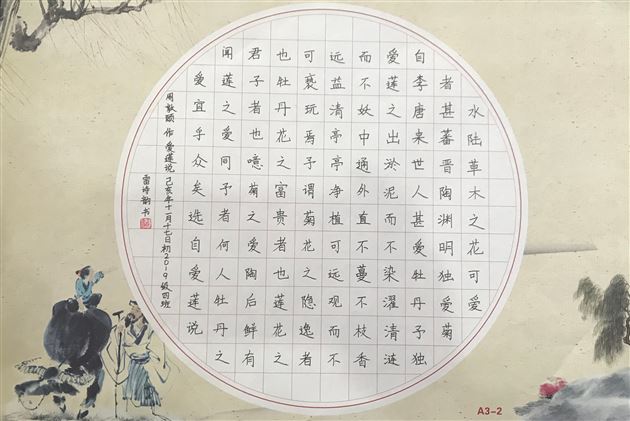 水陆草木之花可爱
者甚蕃晋陶渊明独爱菊
自李唐来世人甚爱牡丹予独
爱莲之出淤泥而不染濯清涟
而不妖中通外直不蔓不枝香
远益清亭亭净植可远观而不
可亵玩焉予谓菊花之隐逸者
也牡丹花之富贵者也莲花之
君子者也噫菊之爱陶后鲜有
闻莲之爱同予者何人牡丹之
爱宜乎众矣选自爱莲说
周敦颐作 爱莲说 己亥年十一月十七日初2019级四班
雷诗韵书
A3-2